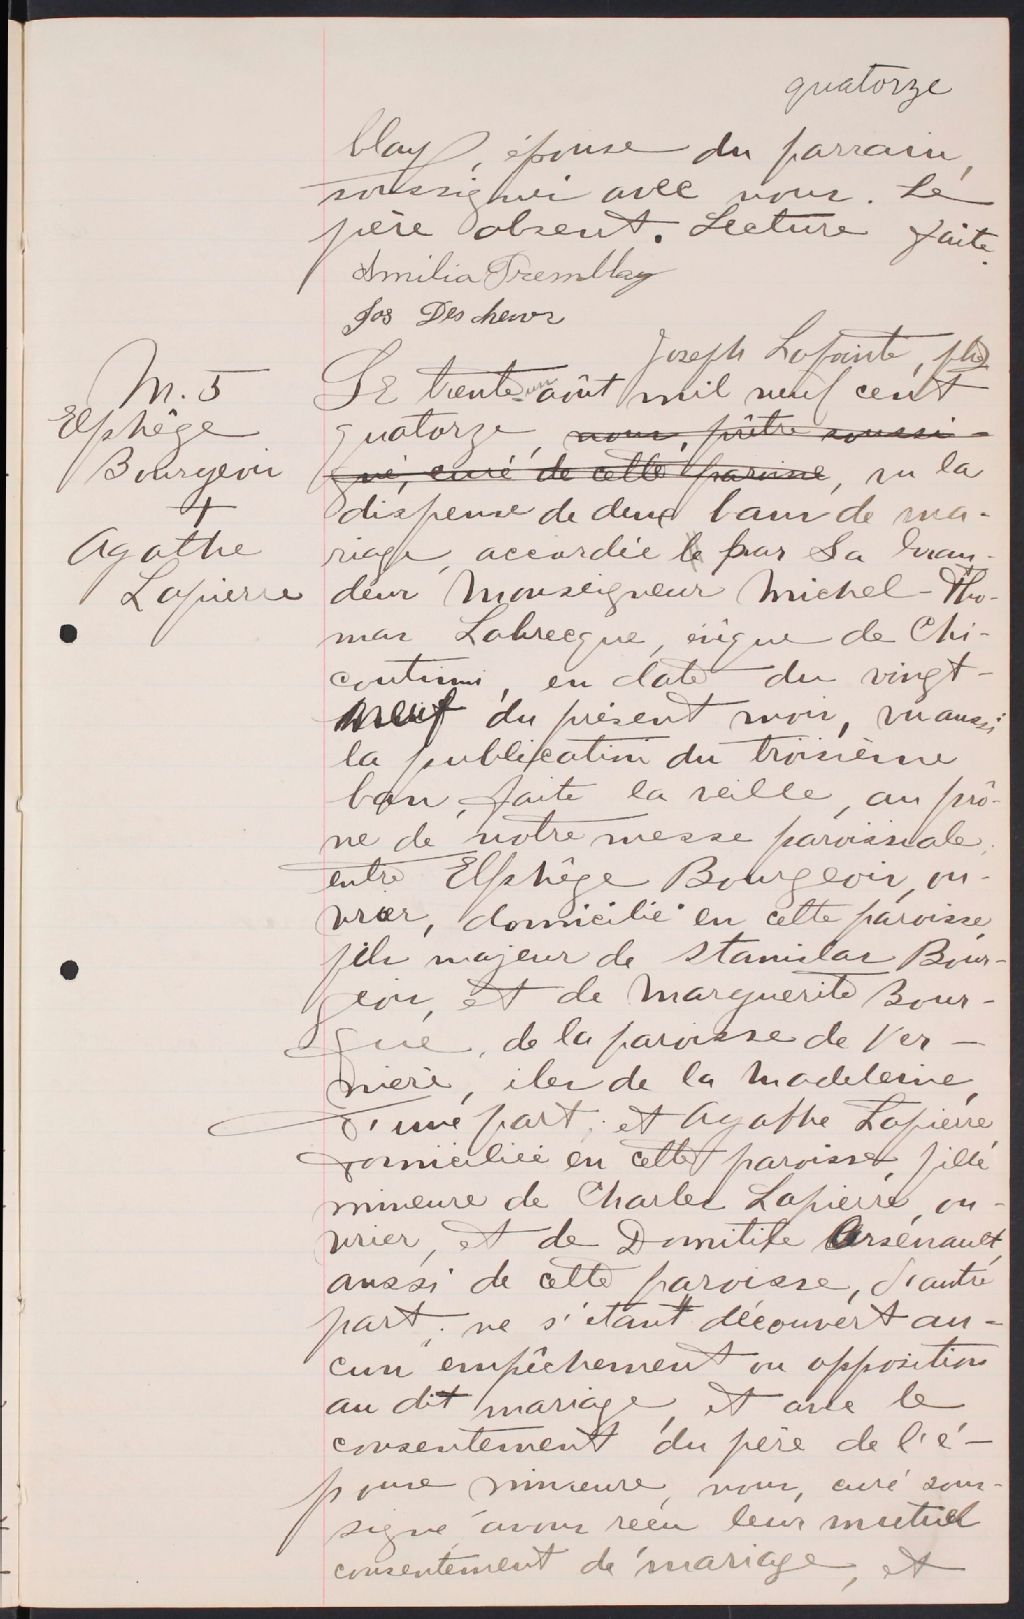 quatorze
blay, épouse du parrain,
soussignés avec nous. Le
père absent. Lecture faite.
Amilia Tremblay
Jos Deschenes
Joseph Lapointe, ptre
M. 5
Elphège
Bourgeois
+
Agathe
Lapierre
Le trente-un août mil neuf cent
quatorze, nous, prêtre soussi-
gné, curé de cette paroisse, vu la
dispense de deux bans de ma-
riage, accordée par Sa Gran-
deur Monseigneur Michel-Tho-
mas Labrecque, évêque de Chi-
coutimi, en date du vingt-
neuf du présent mois, vu aussi
la publication du troisième
ban, faite la veille, au prô-
ne de notre messe paroissiale,
entre Elphège Bourgeois, ou-
vrier, domicilié en cette paroisse,
fils majeur de Stanislas Bour-
geois, et de Marguerite Bour-
que, de la paroisse de Ver-
nière, iles de la Madeleine,
d'une part; et Agathe Lapierre
domiciliée en cette paroisse, fille
mineure de Charles Lapierre, ou-
vrier, et de Domitile Arsenault,
aussi de cette paroisse, d'autre
part; ne s'étant découvert au-
cun empêchement ou opposition
au dit mariage, et avec le
consentement du père de l'é-
pouse mineure, nous, curé sous-
signé avons reçu leur mutuel
consentement de mariage, et